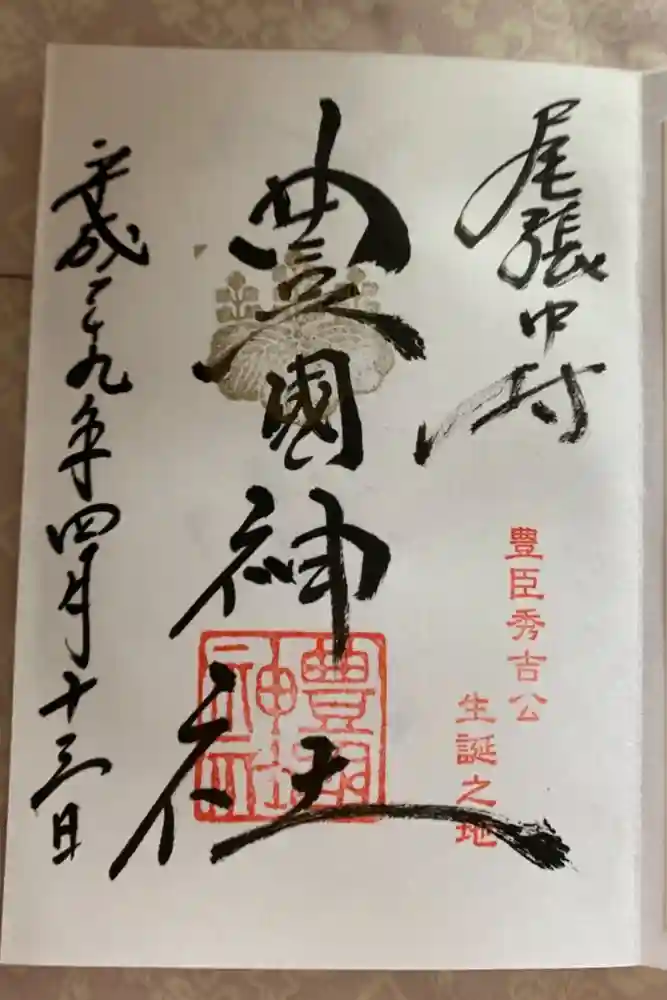 尾張中村
豊臣秀吉公
生誕之地
豊國神社
豊國神社
平成二十九年四月十三日